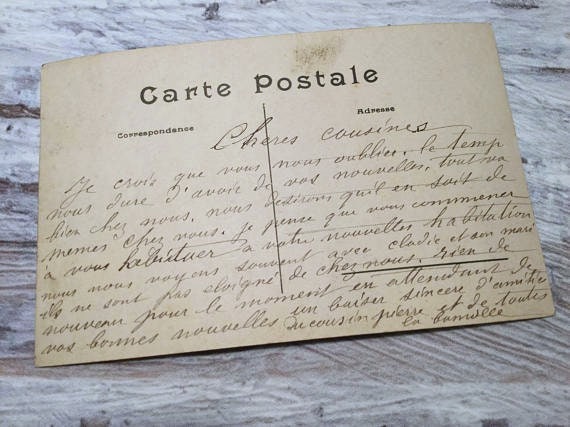 Carte Postale
Correspondance
Adresse
Chères cousines
Je crois que vous nous oubliez, le temp
nous dure d'avoir de vos nouvelles, tout va
bien chez nous, nous desirons qu'il en soit de
memes chez nous. je pense que vous commencer
à vous habituer à votre nouvelles habitation
nous nous voyons souvent avec clodie et son mari
ils ne sont pas eloigné de chez nous. rien de
nouveau pour le moment en attendant de
vos bonnes nouvelles un baiser sincere d'amitié
du cousin pierre et de toutes
la famille